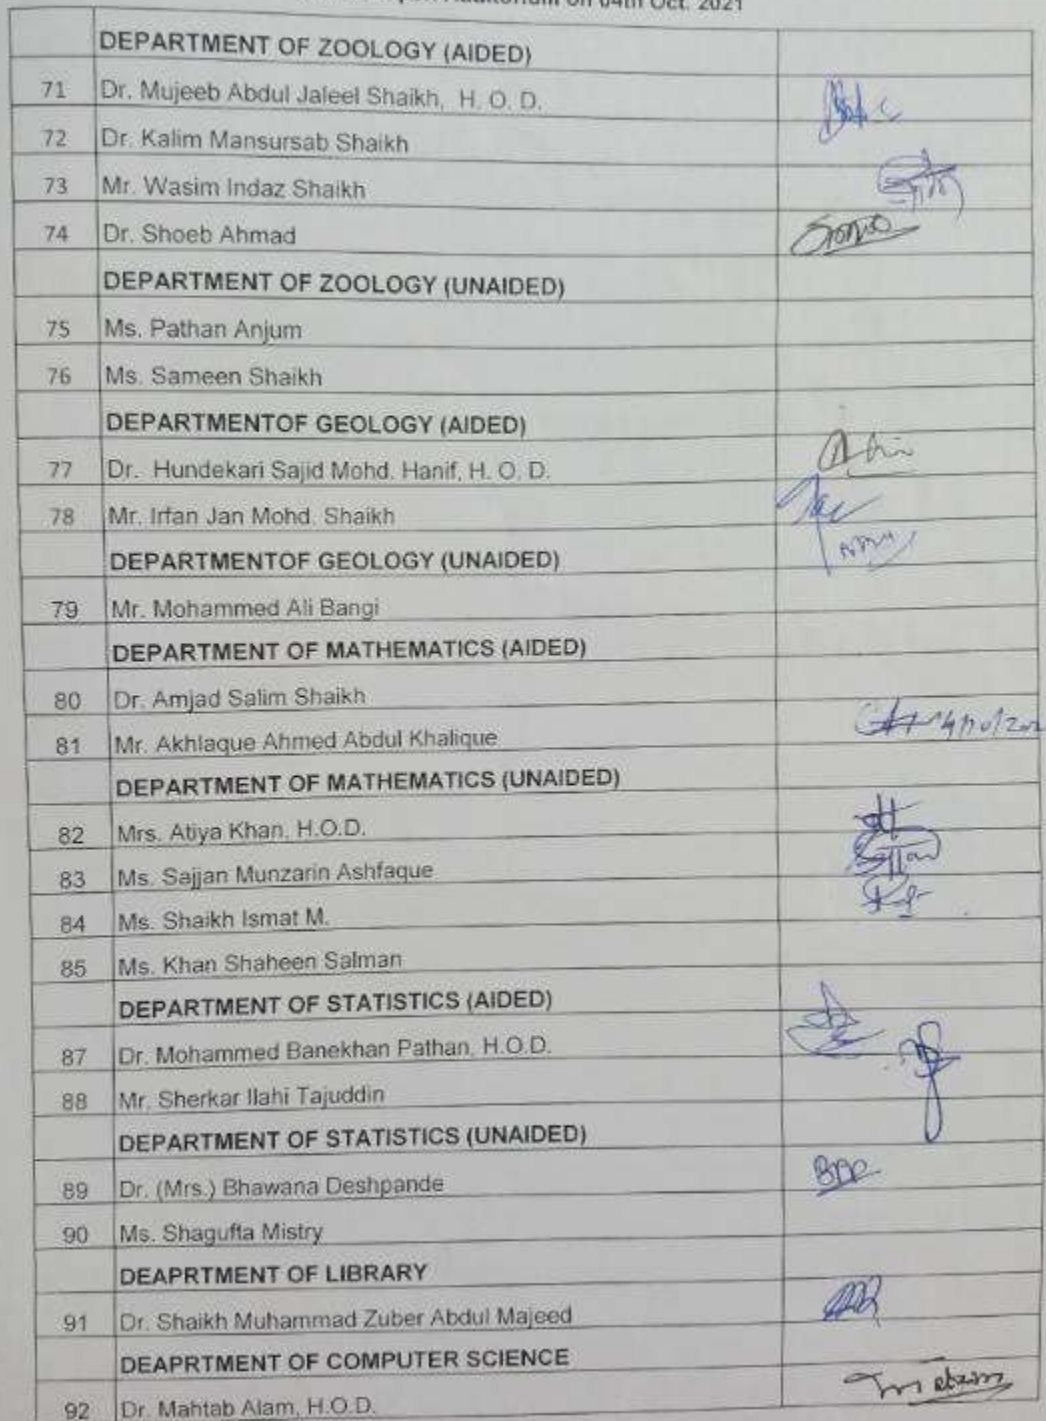 on 04th Oct. 2021
DEPARTMENT OF ZOOLOGY (AIDED)
71 Dr. Mujeeb Abdul Jaleel Shaikh, H. O. D.
72 Dr. Kalim Mansursab Shaikh
73 Mr. Wasim Indaz Shaikh
74 Dr. Shoeb Ahmad
DEPARTMENT OF ZOOLOGY (UNAIDED)
75 Ms. Pathan Anjum
76 Ms. Sameen Shaikh
DEPARTMENTOF GEOLOGY (AIDED)
77 Dr. Hundekari Sajid Mohd. Hanif, H. O. D.
78 Mr. Irfan Jan Mohd. Shaikh
DEPARTMENTOF GEOLOGY (UNAIDED)
79 Mr. Mohammed Ali Bangi
DEPARTMENT OF MATHEMATICS (AIDED)
80 Dr. Amjad Salim Shaikh
81 Mr. Akhlaque Ahmed Abdul Khalique
DEPARTMENT OF MATHEMATICS (UNAIDED)
82 Mrs. Atiya Khan, H.O.D.
83 Ms. Sajjan Munzarin Ashfaque
84 Ms. Shaikh Ismat M.
85 Ms. Khan Shaheen Salman
DEPARTMENT OF STATISTICS (AIDED)
87 Dr. Mohammed Banekhan Pathan, H.O.D.
88 Mr. Sherkar Ilahi Tajuddin
DEPARTMENT OF STATISTICS (UNAIDED)
89 Dr. (Mrs.) Bhawana Deshpande
90 Ms. Shagufta Mistry
DEAPRTMENT OF LIBRARY
91 Dr. Shaikh Muhammad Zuber Abdul Majeed
DEAPRTMENT OF COMPUTER SCIENCE
92 Dr. Mahtab Alam, H.O.D.